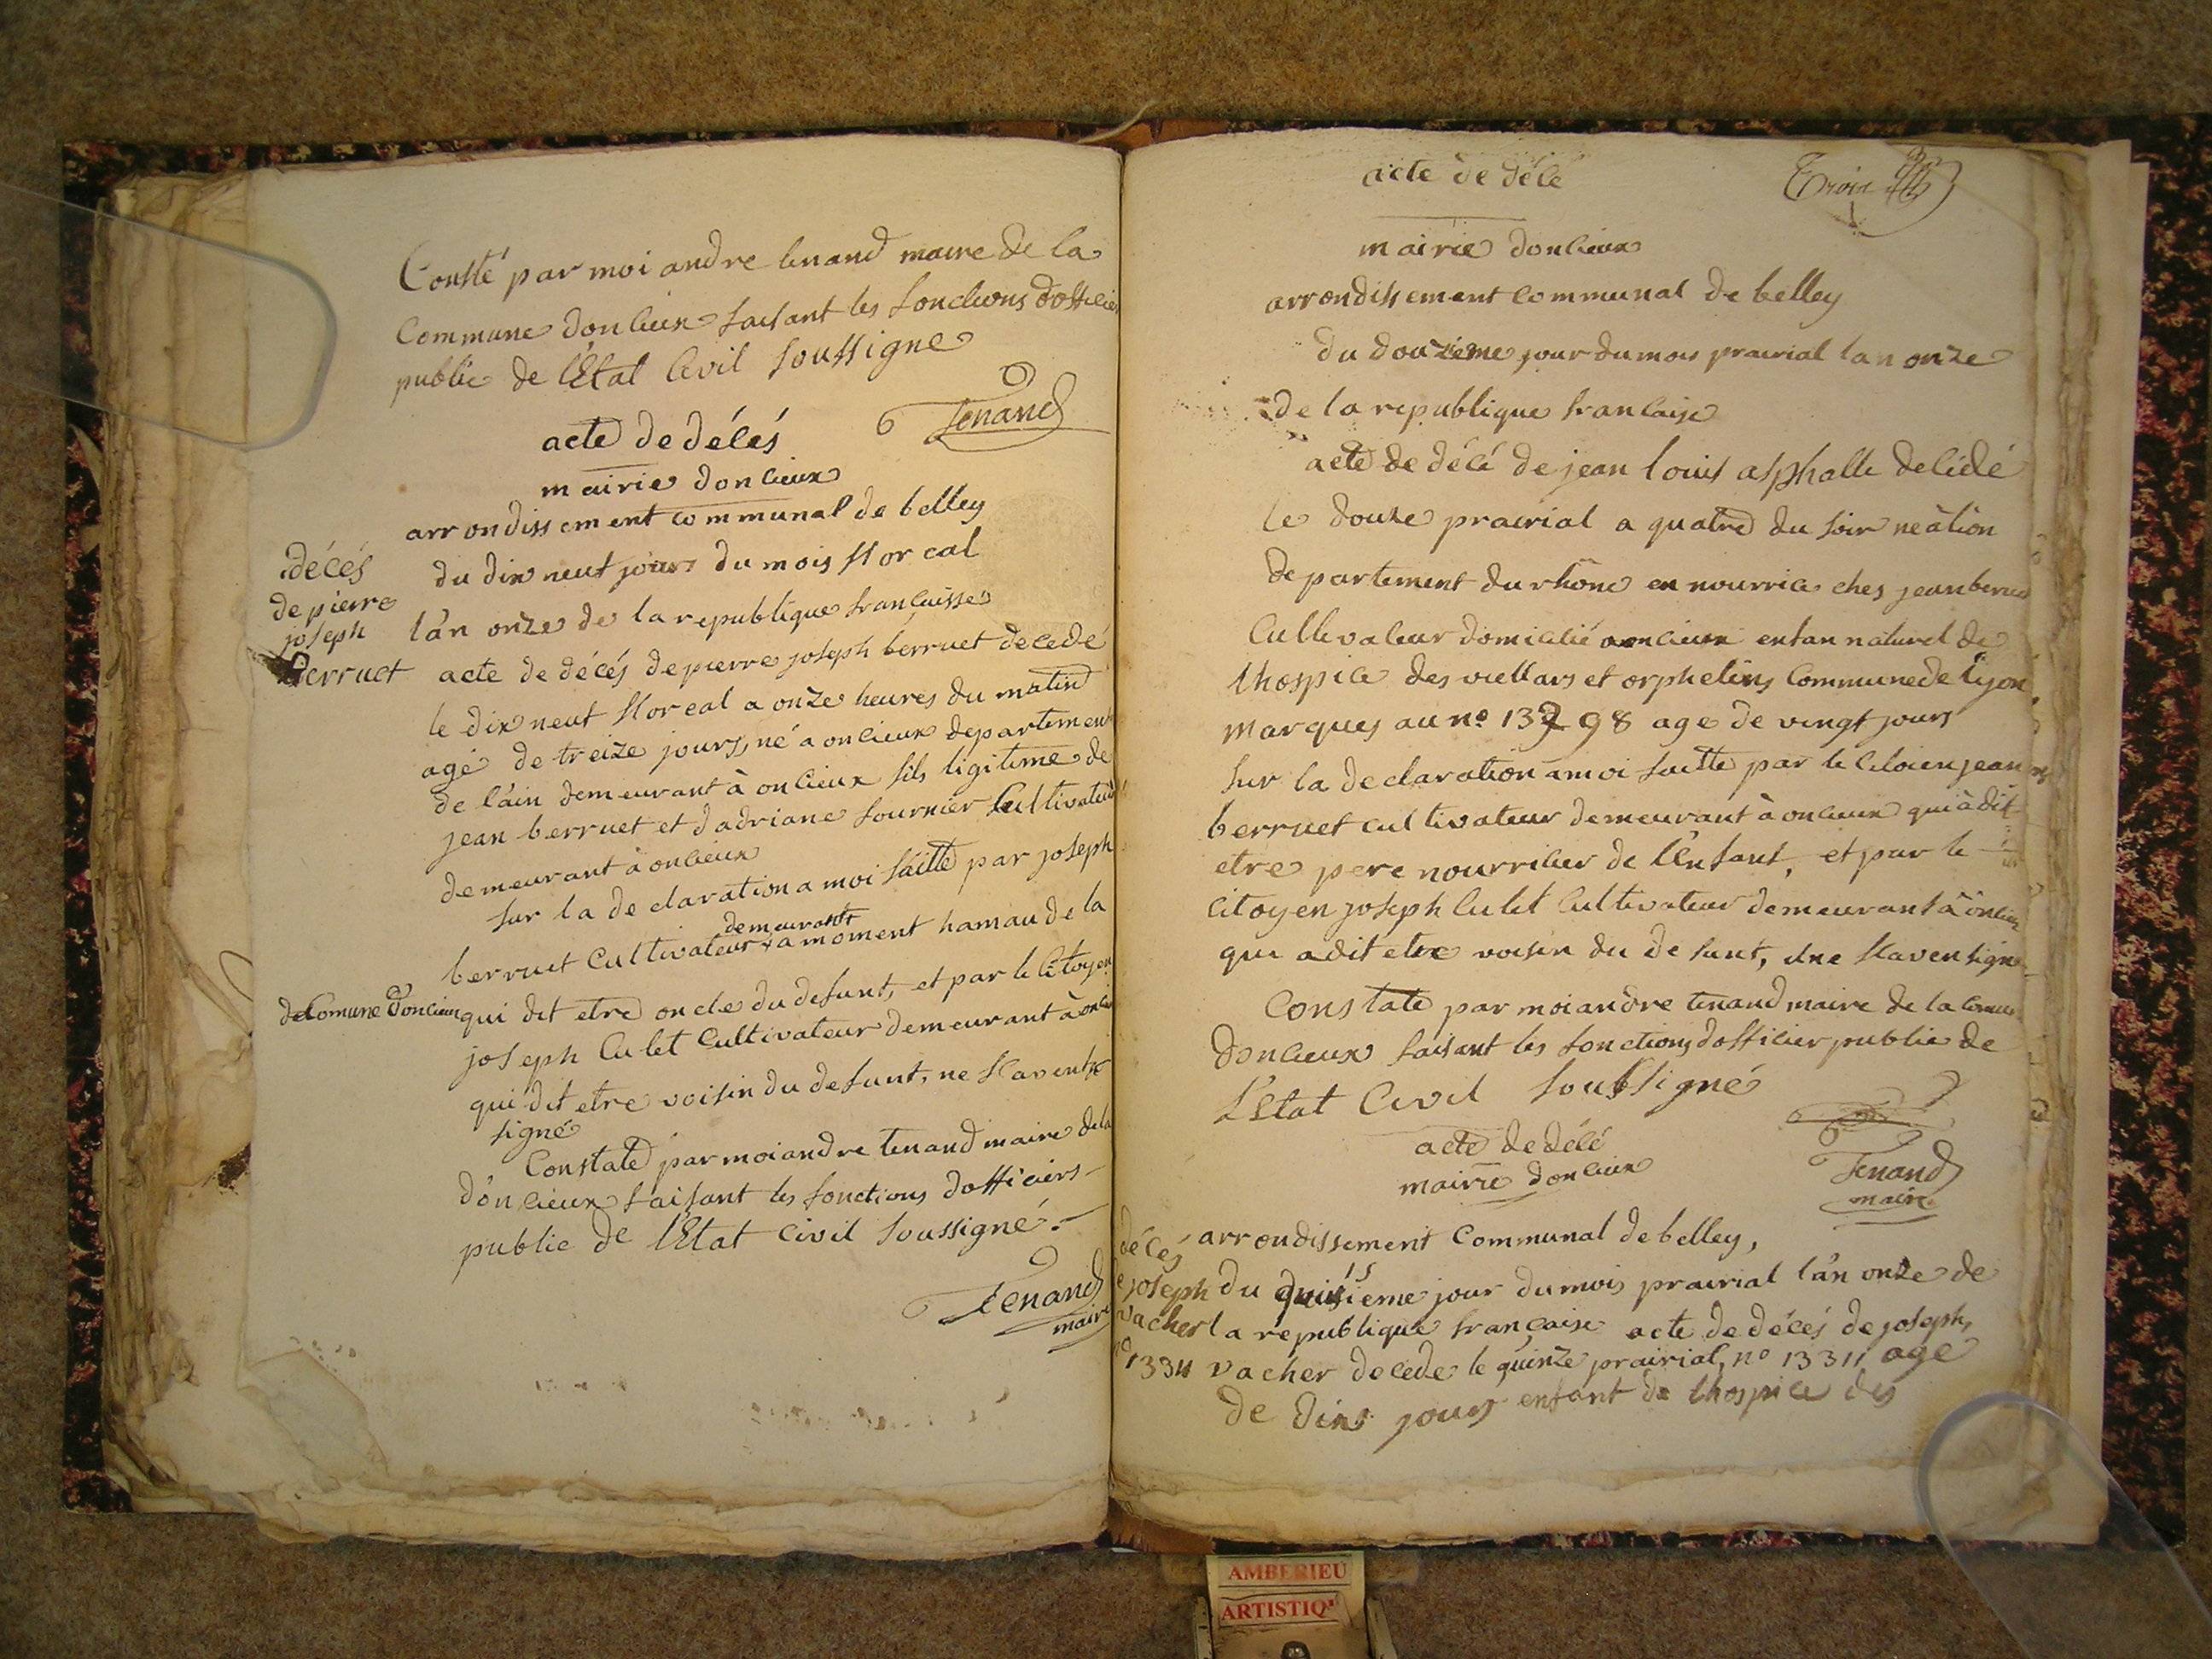 Consté par moi andre tenand maire de la
Commune donlieux faisant les fonctions dofficier
public de lEtat Civil soussigne
Tenand
acte de décés
mairie donlieux
arrondissement communal de belley
décés
de pierre
joseph
Berruet
du dix neuf jours du mois floreal
l'an onze de la republique françaisse
acte de décés de pierre joseph berruet decedé
le dix neuf floreal a onze heures du matin
agé de treize jours, né a onlieux departement
de l'ain demeurant à onlieux fils ligitime de
jean berruet et dadriane fournier Cultivateur
demeurant à onlieux
sur la declaration a moi faitte par joseph
demeurant
berruet Cultivateur a moment hamau de la
de Comune donlieux qui dit etre oncle du defunt, et par le Citoyen
joseph Culet Cultivateur demeurant à onlieux
qui dit etre voisin du defunt, ne sçavent
signé
Constaté par moi andre tenand maire de la
d'onlieux faisant les fonctions dofficiers
public de lEtat Civil soussigné
Tenand
maire
acte de décé
mairie donlieux
arrondissement communal de belley
du douzieme jour du mois prairial lan onze
de la republique francaise
acte de décé de jean louis asphalle décédé
le douze prairial a quatre du soir ne à lion
departement du rhône en nourrice ches jean berruet
Cultivateur domicilié a onlieux enfan naturel de
lhospice des viellars et orphelins Commune de Lyon
marques au no 13298 age de vingt jours
sur la declaration a moi faitte par le citoien jean
berruet cultivateur demeurant à onlieux qui à dit
etre pere nourricier de l'Enfant, et par le
Citoyen joseph Culet Cultivateur demeurant à onlieux
qui a dit etre voisin du defunt, ne sçaven signé
Constaté par moi andre tenand maire de la Comune
donlieux faisant les fonctions dofficier public de
L'Etat Civil soussigné
acte de décé
mairie donlieux
Tenand
maire
arrondissement Communal de belley,
décés
de joseph
vacher
no 13311
15
du quisieme jour du mois prairial l'an onze de
la republique française acte de décés de joseph
vacher decede le quinze prairial, no 13311 agé
de dix jours enfant de lhospice des
AMBERIEU
ARTISTIQ